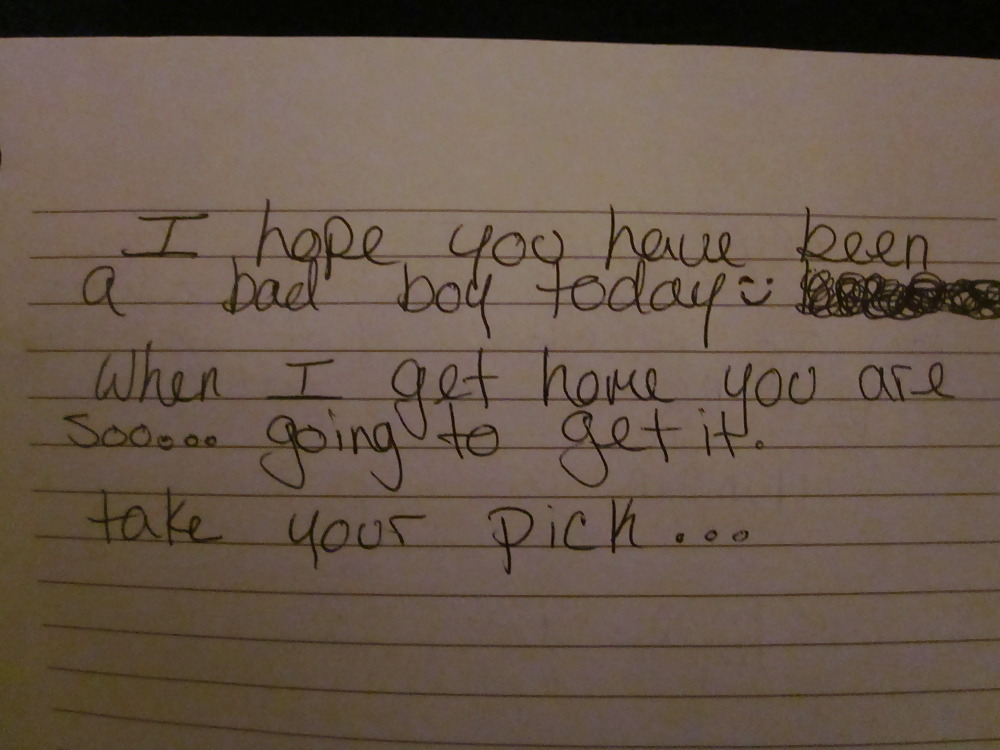 I hope you have been
a bad boy today :)
When I get home you are
soo.... going to get it.
take your pick...